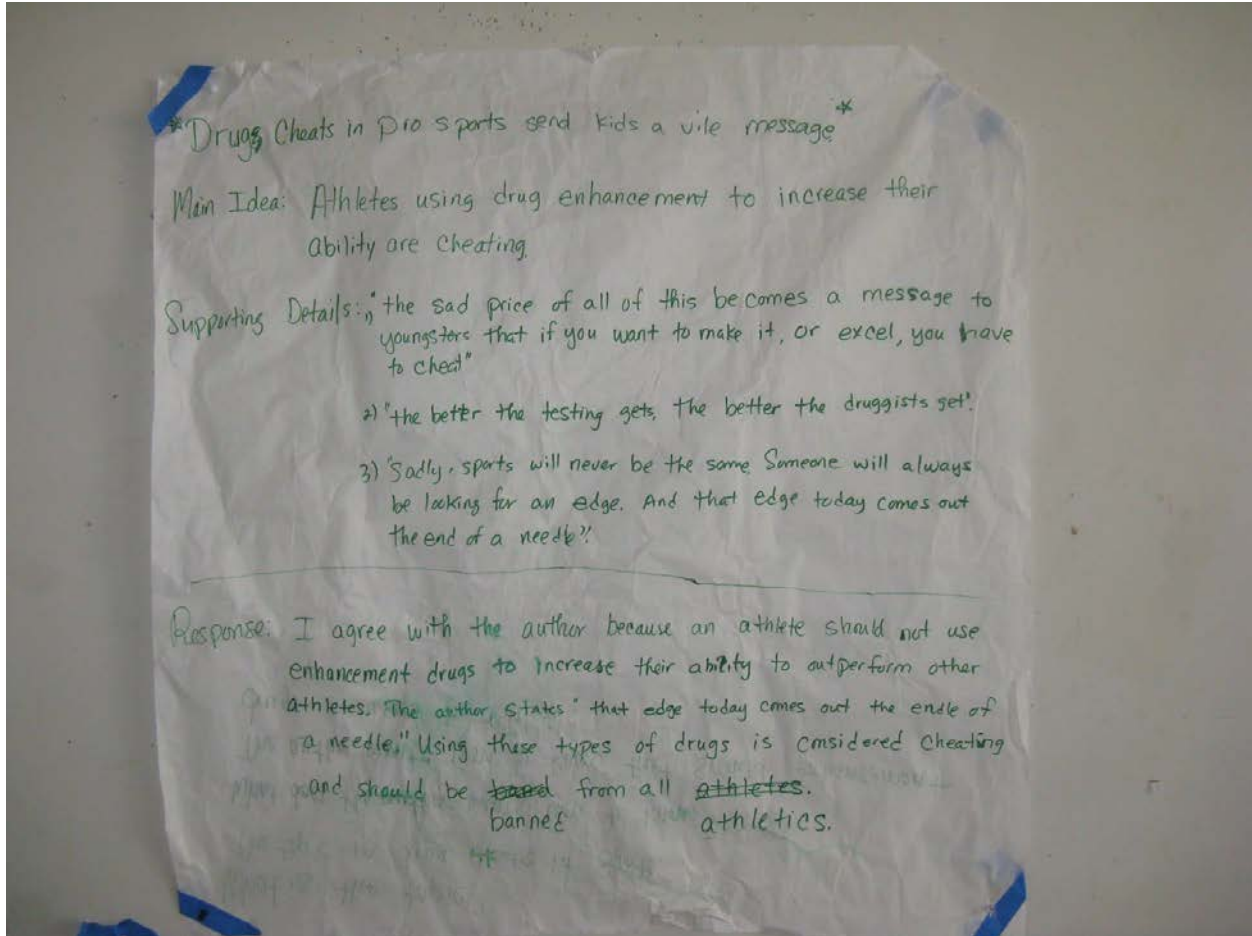 *Drugs Cheats in pro sports send kids a vile message*
Main Idea: Athletes using drug enhancement to increase their
ability are cheating.
Supporting Details: 1) "the sad price of all of this becomes a message to
youngsters that if you want to make it, or excel, you have
to cheat"
2) "the better the testing gets, the better the druggists get".
3) "Sadly, sports will never be the same. Someone will always
be looking for an edge. And that edge today comes out
the end of a needle".
Response: I agree with the author because an athlete should not use
enhancement drugs to increase their ability to outperform other
athletes. The author states "that edge today comes out the endle of
a needle." Using these types of drugs is considered cheating
and should be from all athletes.
banned athletics.